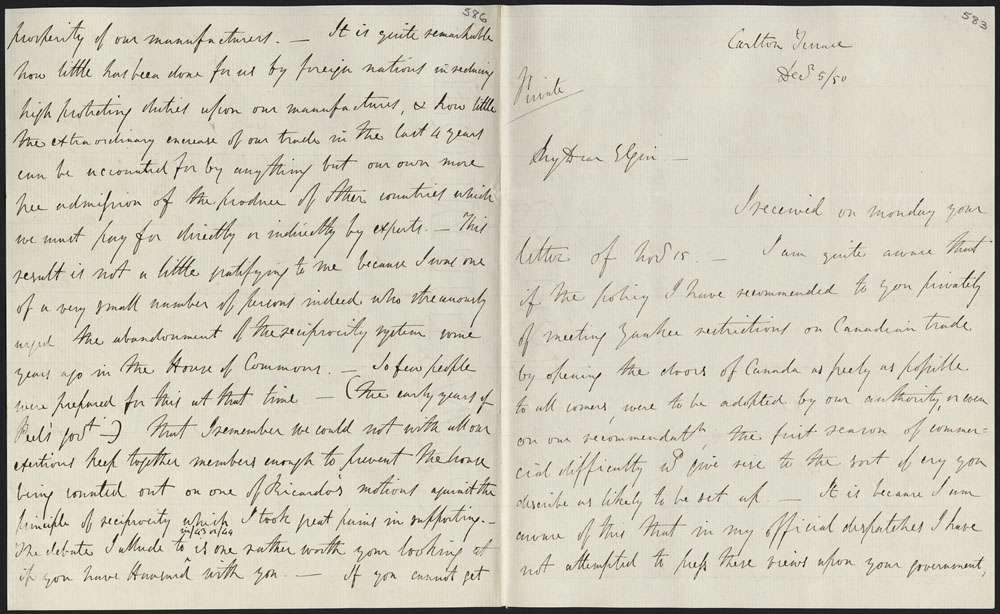 586
prosperity of our manufacturers. — It is quite remarkable
how little has been done for us by foreign nations in reducing
high protecting duties upon our manufactures, & how little
the extraordinary encrease of our trade in the last 4 years
can be accounted for by anything but our own more
free admission of the produce of other countries which
we must pay for directly or indirectly by exports. — This
result is not a little gratifying to me because I was one
of a very small number of persons indeed who strenuously
urged the abandonment of the reciprocity system some
years ago in the House of Commons. — So few people
were prepared for this at that time — (the early years of
Peel's govt —) that I remember we could not with all our
exertions keep together members enough to prevent the house
being counted out on one of Ricardo's motions against the
principle of reciprocity which I took great pains in supporting. —
in/43 or/44
The debate I allude to is one rather worth your looking at
if you have Hansard with you. — If you cannot get
583
Carlton Terrace
Decr 5/50
Private
My Dear Elgin. —
I received on monday your
letter of Novr 15. — I am quite aware that
if the policy I have recommended to you privately
of meeting Yankee restrictions on Canadian trade
by opening the doors of Canada as freely as possible
to all comers, were to be adopted by our authority, or even
on our recommendatn, the first season of commer=
cial difficulty wd give rise to the sort of cry you
describe as likely to be set up. — It is because I am
aware of this that in my official despatches I have
not attempted to press these views upon your government,